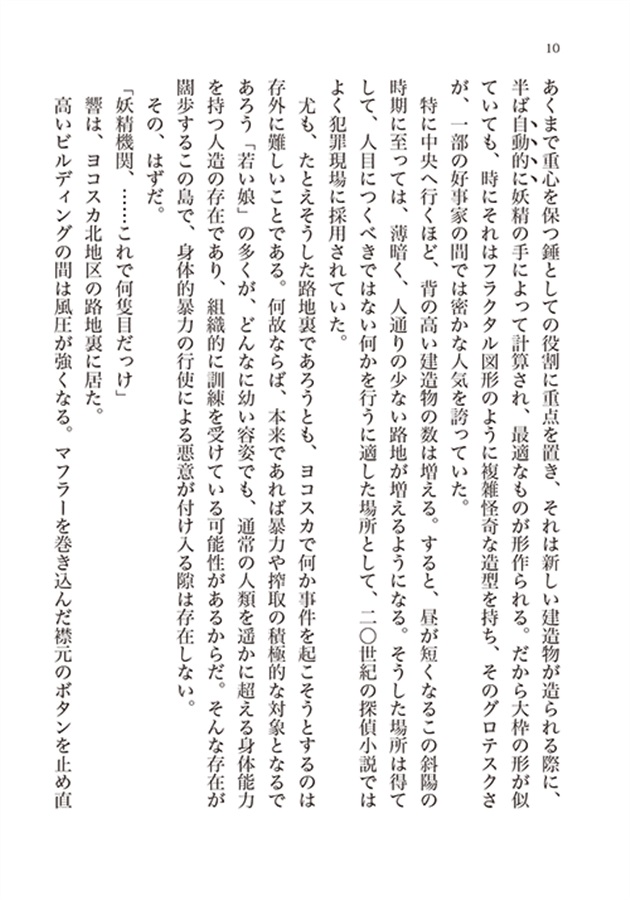 10
あくまで重心を保つ錘としての役割に重点を置き、それは新しい建造物が造られる際に、
半ば自動的に妖精の手によって計算され、最適なものが形作られる。だから大枠の形が似
ていても、時にそれはフラクタル図形のように複雑怪奇な造型を持ち、そのグロテスクさ
が、一部の好事家の間では密かな人気を誇っていた。
特に中央へ行くほど、背の高い建造物の数は増える。すると、昼が短くなるこの斜陽の
時期に至っては、薄暗く、人通りの少ない路地が増えるようになる。そうした場所は得て
して、人目につくべきではない何かを行うに適した場所として、二〇世紀の探偵小説では
よく犯罪現場に採用されていた。
尤も、たとえそうした路地裏であろうとも、ヨコスカで何か事件を起こそうとするのは
存外に難しいことである。何故ならば、本来であれば暴力や搾取の積極的な対象となるで
あろう「若い娘」の多くが、どんなに幼い容姿でも、通常の人類を遥かに超える身体能力
を持つ人造の存在であり、組織的に訓練を受けている可能性があるからだ。そんな存在が
闊歩するこの島で、身体的暴力の行使による悪意が付け入る隙は存在しない。
その、はずだ。
「妖精機関、……これで何隻目だっけ」
響は、ヨコスカ北地区の路地裏に居た。
高いビルディングの間は風圧が強くなる。マフラーを巻き込んだ襟元のボタンを止め直